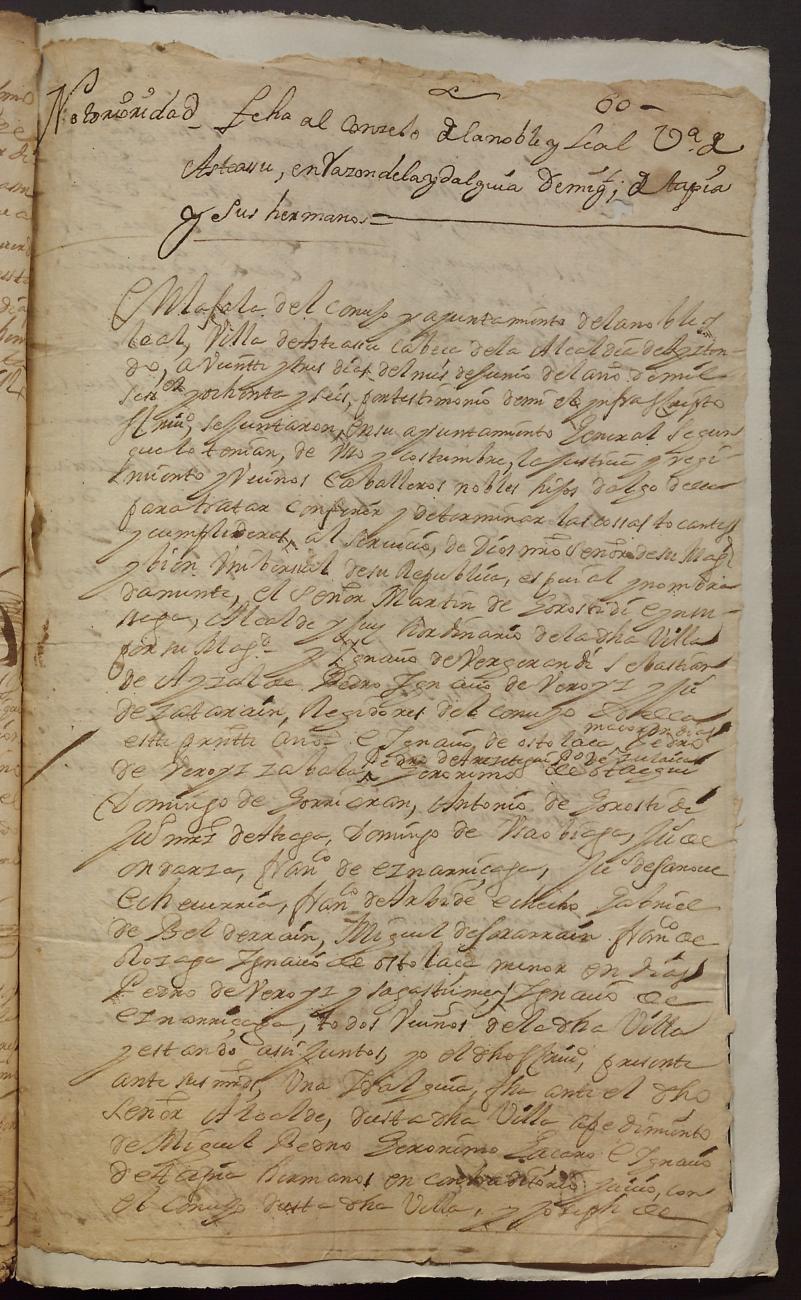 60
Notorioridad fcha al conzelo de la noble y Leal Va. de
Asteasu, en Razon de la ydalguia de migl; de tapia
y sus hermanos
En la sala del conzejo y ayuntamiento de la noble y
leal, Villa de Asteasu cabeza de la Alcaldia de Ayzton-
do, a veintte y tres dias del mes de junio del año de mil
seisos y ochenta y seis, por testimonio de mi el ynfrascripto
scriuo, se juntaron, en su ayuntamiento General segun
que lo tenian, de Vso y costumbre, la justicia y regi-
miento y Vecinos Caballeros nobles hijos dalgo de ella
para tratar conferir y determinar las cossas tocantes
y cumplideras al servicio, de Dios nro señor de su Magd
y bien Vnibersal de su Republica, espicial y nombra
damente, el señor Martin de Gorostidi
Alcalde y juez hordinario de la dha Villa
por su Magd y Ygnacio de Vergerandi Sebastian
de Ayzalde Pedro Ygnacio de Veroyz y Ju
de Zatarain, Regidores del conzejo de ella
este presste año, e Ygnacio de ostolaza maior en dias Pedro
de Veroyz Zabala, Pedro de Geronimo de otaegui
Domingo de Gorrieran, Antonio de Gorostidi
de Ateaga, Domingo de Vsaobiaga, Ju de
ondarza, franco de eznarrizaga, Ju de
echeverria, franco de Arbide Gabriel
de Belderrain, Miguel de franco de
Rozaga Ygnacio de ostolaza menor en dias
Pedro de Veroyz y sagastumea, Ygnacio de
eznarrizaga, todos Vecinos de la dha Villa
y estando assi juntos, yo el dho scriuo, presente
ante sus mrds, Vna ydalguia, fha ante el dho
señor Alcalde, de esta dha Villa a pedimiento
de Miguel Pedro Geronimo Lazaro e Ygnacio
de tapia hermanos en contraditorio juicio, con
el conzejo de esta dha Villa, y joseph de